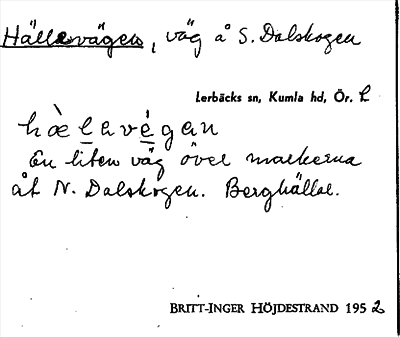 Hällavägen, väg å S. Dalskogen
Lerbäcks sn, Kumla hd, Ör. L
hæ̀lavé̱gan
En liten väg över markerna
åt N. Dalskogen. Berghällar.
BRITT-INGER HÖJDESTRAND 1952